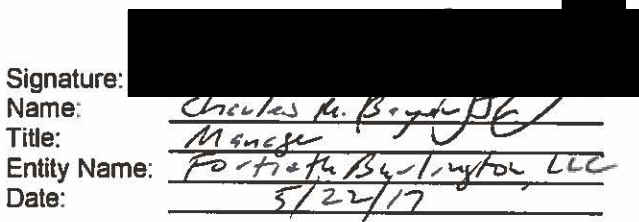 Signature:
Name: Charles M.
Title: Manager
Entity Name: Fortieth Burlington, LLC
Date: 5/22/17